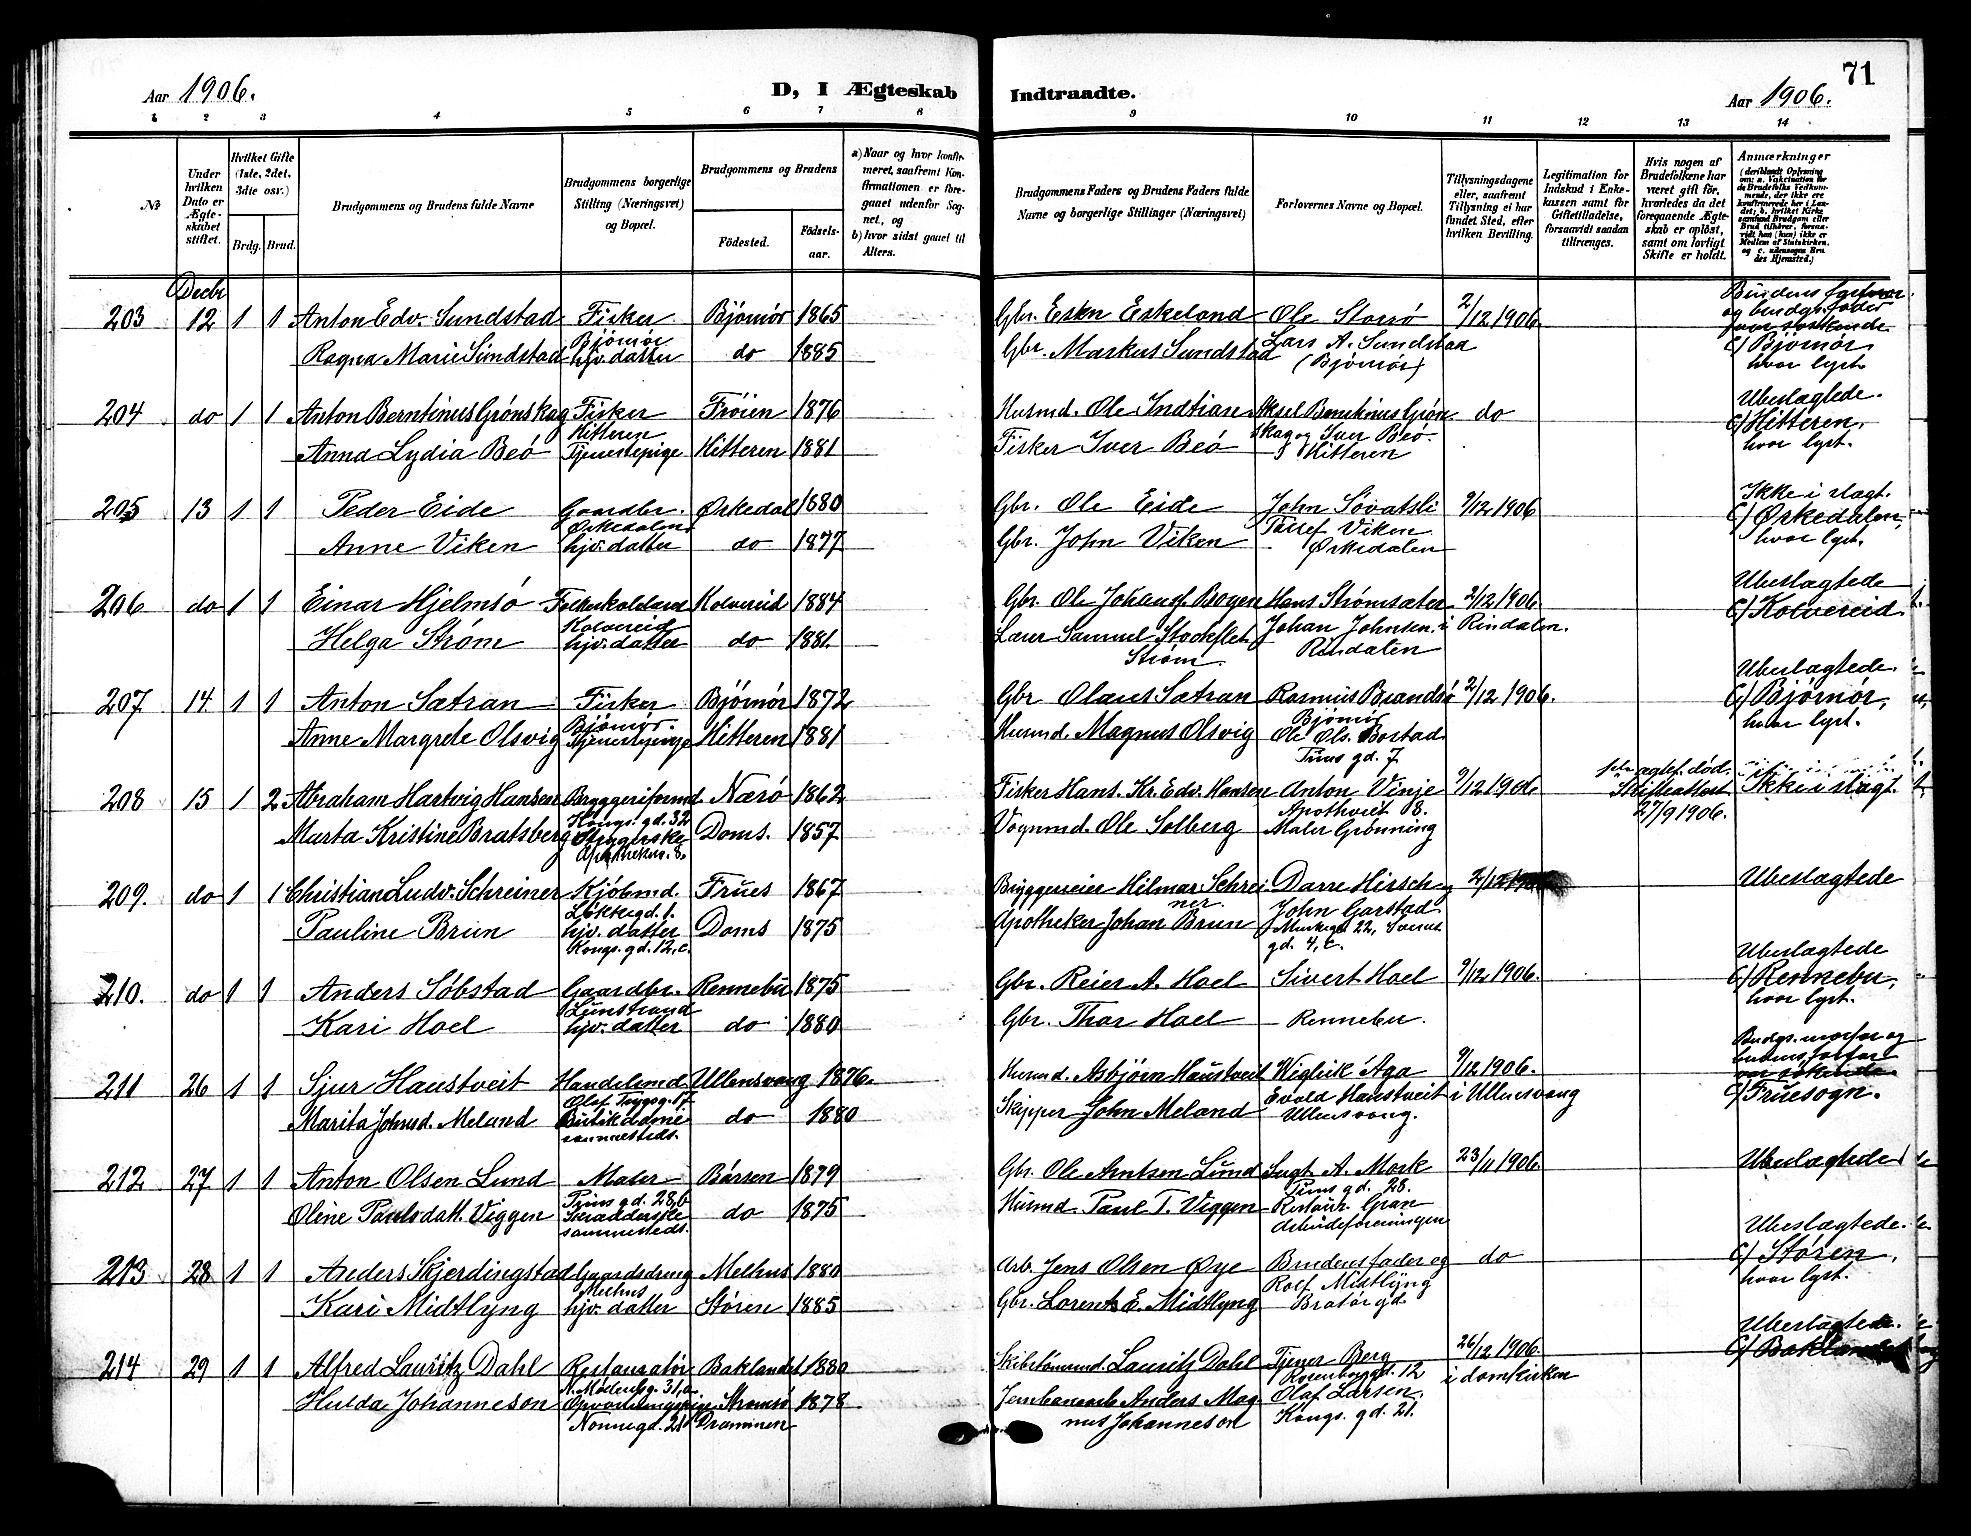 71
Aar 1906.
D, I Ægteskab Indtraadte.
Aar 1906.
1 2 3 4 5 6 7 8 9 10 11 12 13 14
No
Under hvilken Dato er Ægteskabet stiftet.
Hvilket Gifte (1ste, 2det, 3die osv.)
Brdg. Brud.
Brudgommens og Brudens fulde Navne
Brudgommens borgerlige Stilling (Næringsvei) og Bopæl.
Brudgommens og Brudens
Fødested.
Fødselsaar.
a) Naar og hvor konfirmeret, saafremt Konfirmationen er foregaaet udenfor Sognet, og
b) hvor sidst gaaet til Alters.
Brudgommens Faders og Brudens Faders fulde Navne og borgerlige Stillinger (Næringsvei)
Forlovernes Navne og Bopæl.
Tillysningsdagene eller, saafremt Tillysning ei har fundet Sted, efter hvilken Bevilling.
Legitimation for Indskud i Enkekassen samt for Giftetilladelse, forsaavidt saadan tiltrænges.
Hvis nogen af Brudefolkene har været gift før, hvorledes da det foregaaende Ægteskab er opløst, samt om lovligt Skifte er holdt.
Anmærkninger
Decbr
203 12 1 1 Anton Edv. Sundstad Fisker Bjørnør 1865 Gbr. Eskn Eskeland Ole Storrø 2/12 1906. Brudens farmor og brudgs. fader
Bjørnør
Ragna Marie Sundstad hjv. datter do 1885 Gbr. Markus Sundstad Lars A. Sundstad (Bjørnør) C/ Bjørnør, hvor lyst.
204 do 1 1 Anton Berntinus Grønskag Fisker Frøien 1876 Husmd. Ole Indtian Aksel Berntinus Grønskag og Iver Beø do Ubeslægtede.
Hitteren
Anna Lydia Beø Tjenestepige Hitteren 1881 Fisker Iver Beø Hitteren C/ Hitteren, hvor lyst.
205 13 1 1 Peder Eide Gaardbr. Ørkedal 1880 Gbr. Ole Eide John Søvatsli 9/12 1906 Ikke i slagt.
Ørkedalen
Anne Viken hjv. datter do 1877 Gbr. John Viken Viken Ørkedalen C/ Ørkedalen, hvor lyst.
206 do 1 1 Einar Hjelmsø Kolvereid 1884 Gbr. Ole Johans. Bogen Hans Strømsæter 2/12 1906 Ubeslægtede
Kolvereid
Helga Strøm hjv. datter do 1881. Lærer Samuel Stockflet Strøm Johan Johnsen i Rindalen. Rindalen C/ Kolvereid
207 14 1 1 Anton Sætran Fisker Bjørnør 1872 Gbr Olaus Sætran Rasmus Brandsø 2/12 1906. Ubeslægtede.
Bjørnør.
Anne Margrete Olsvig Tjenestepige Hitteren 1881 Husmd. Magnus Olsvig Bjørnør Ole Ols. Bostad Prins gd. 7 C/ Bjørnør, hvor lyst.
208 15 1 2 Abraham Hartvig Hansen Bryggeriformd Nærø 1862 Fisker Hans Kr. Edv. Hansen Anton Vinje 9/12 1906 Skifteattest 27/9 1906. Ikke i slagt.
Kongs. gd. 32
Marta Kristine Bratsberg Strygerske Doms. 1857 Vognmd. Ole Solberg Apothveit 8. Maler Grønning
209. do 1 1 Christian Ludv. Schreiner Kjøbmd. Frues 1867 Bryggeeier Hilmar Schreiner Darre Hirsch og Ubeslægtede
Løkkegd. 1.
Pauline Brun hjv. datter Doms 1875 Apotheker Johan Brun John Garstad Munkegd 22,
Kongs. gd. 12, c. gd. 4, c.
210. do 1 1 Anders Søbstad Gaardbr. Rennebu 1875 Gbr. Reier A. Hoel Sivert Hoel 9/12 1906. Ubeslægtede
Kari Hoel hjv. datter do 1880 Gbr. Thor Hoel Rennebu. C/ Rennebu, hvor lyst.
211 26 1 1 Sjur Haustveit Handelsmd. Ullensvang 1876. Husmd. Asbjørn Haustveit Wiglik Aga 9/12 1906. Brudgs. morfar og brudens farfar
Olaf Trygsg. 17
Marita Johnsd. Meland Butikdame do 1880 Skipper John Meland Evald Haustveit i Ullensvang Ullensvang. C/ Fruesogn.
sammesteds.
212 27 1 1 Anton Olsen Lund Maler Børsen 1879 Gbr. Ole Arntsen Lund Sugt. A. Mork 23/11 1906 Ubeslægtede
Prins gd. 28b Prins gd. 28.
Oline Paulsdatt. Viggen Skrædderske do 1875 Husmd Paul T. Viggen Restaur. Gran
sammesteds. Arbeiderforeningen
213 28 1 1 Anders Skjerdingstad Gaardsdreng Melhus 1880 Arb. Jens Olsen Øye Brudens fader og do Ubeslægtede.
Melhus Rolf Midtlyng
Kari Midtlyng hjv. datter Støren 1885 Gbr. Lorents E. Midtlyng Bratør gd. C/ Støren, hvor lyst.
214 29 1 1 Alfred Lauritz Dahl Restauratør Baklandet 1880 Skibstømmd. Lauritz Dahl Tjener Berg 26/12 1906. Ubeslægtede.
Rosenborggd. 12 i domkirken C/ Baklandet
Hulda Johanneson Opvartningspige Strømsø 1878 Jernbanearb Anders Magnus Johanneson Olaf Larsen.
Nonnegd. 21 Drammen Kongs. gd. 21.